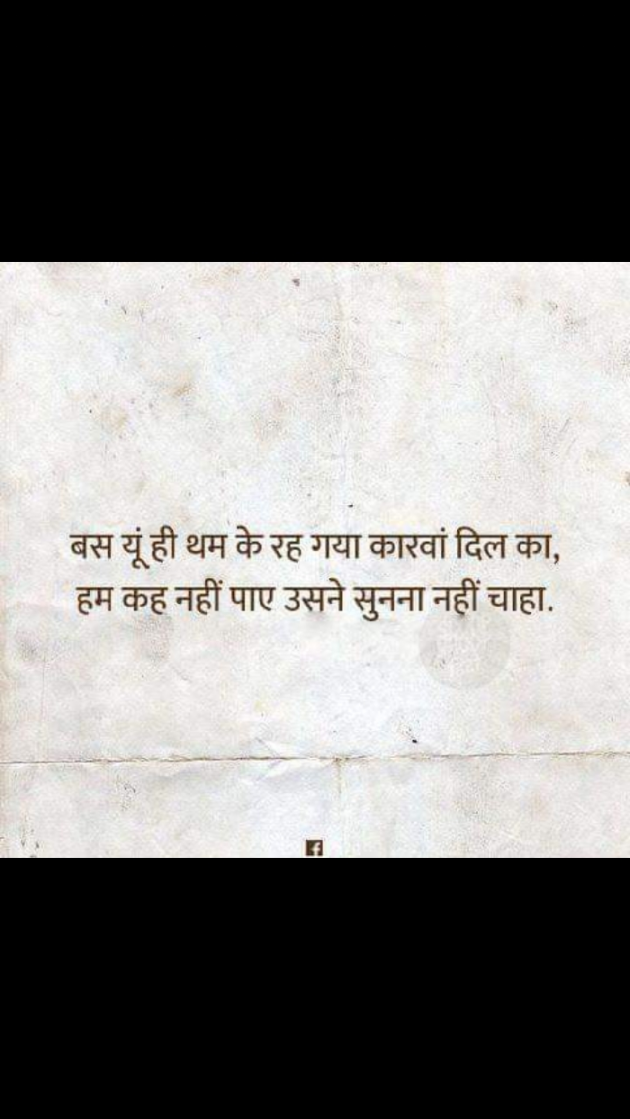 बस यूं ही थम के रह गया कारवां दिल का,
हम कह नहीं पाए उसने सुनना नहीं चाहा.